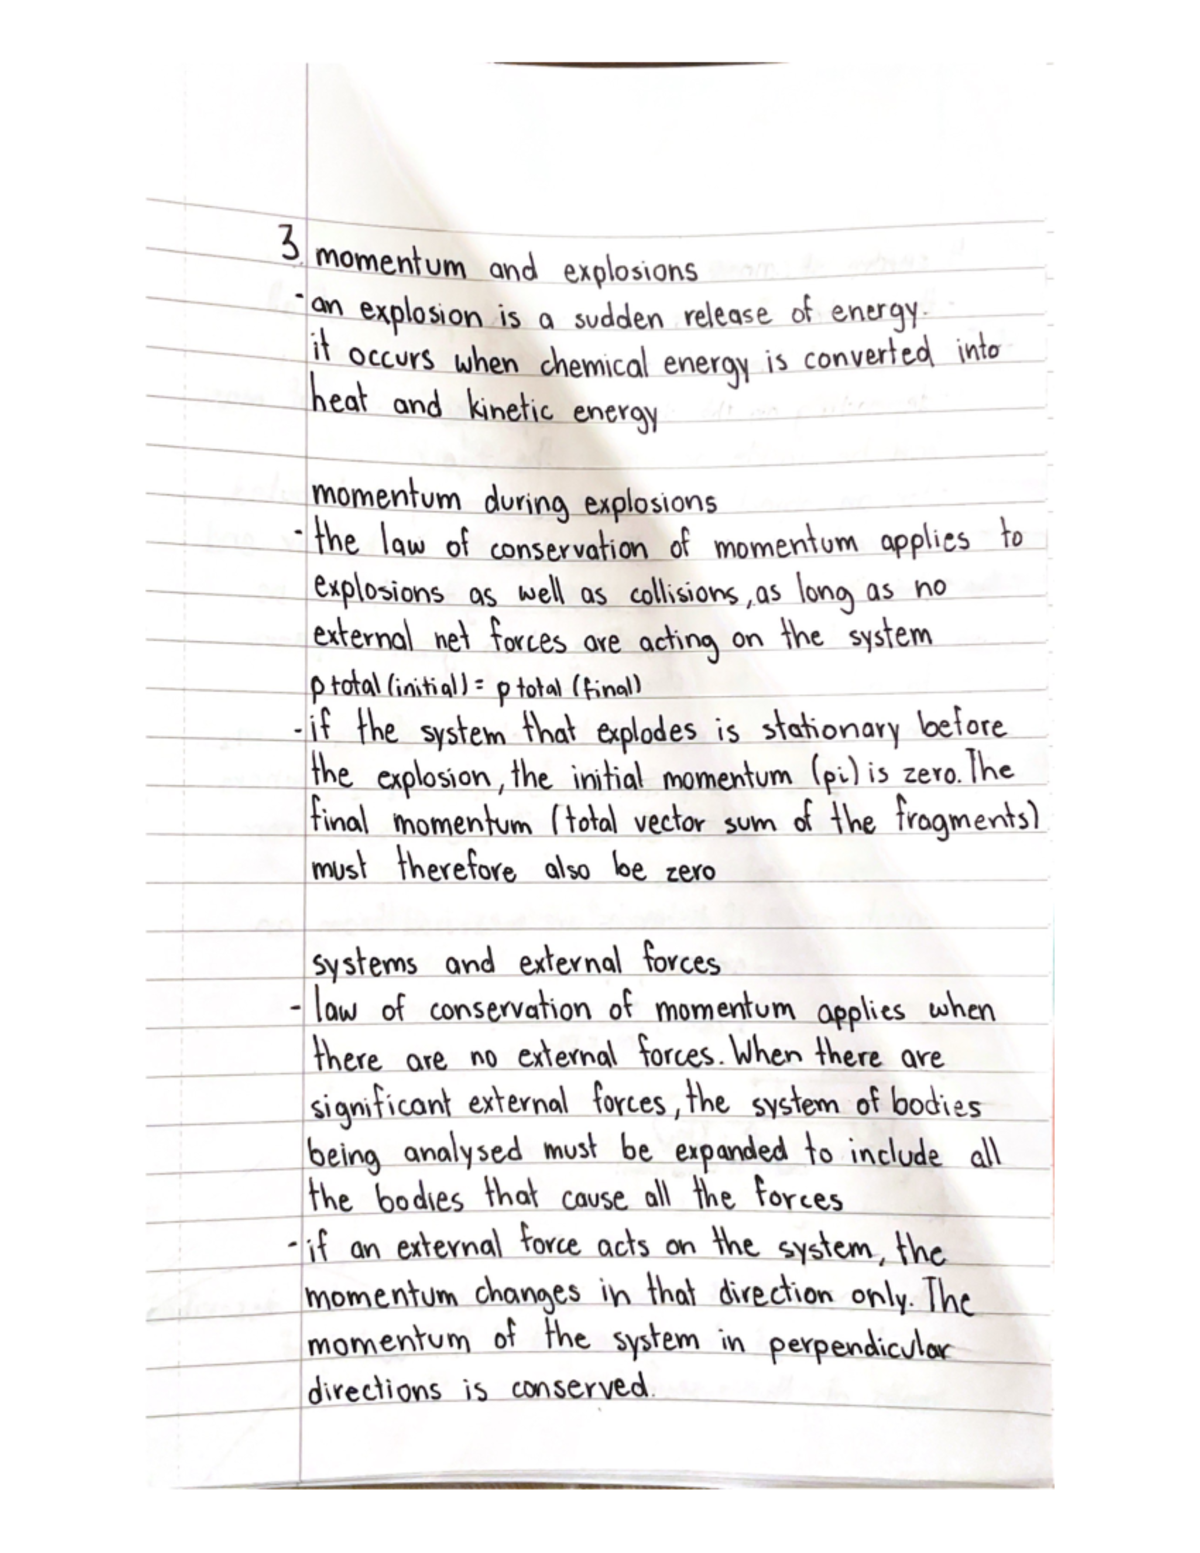 3. momentum and explosions
- an explosion is a sudden release of energy.
it occurs when chemical energy is converted into
heat and kinetic energy
momentum during explosions
- the law of conservation of momentum applies to
explosions as well as collisions, as long as no
external net forces are acting on the system
p total (initial) = p total (final)
- if the system that explodes is stationary before
the explosion, the initial momentum (pi) is zero. The
final momentum (total vector sum of the fragments)
must therefore also be zero
systems and external forces
- law of conservation of momentum applies when
there are no external forces. When there are
significant external forces, the system of bodies
being analysed must be expanded to include all
the bodies that cause all the forces
- if an external force acts on the system, the
momentum changes in that direction only. The
momentum of the system in perpendicular
directions is conserved.